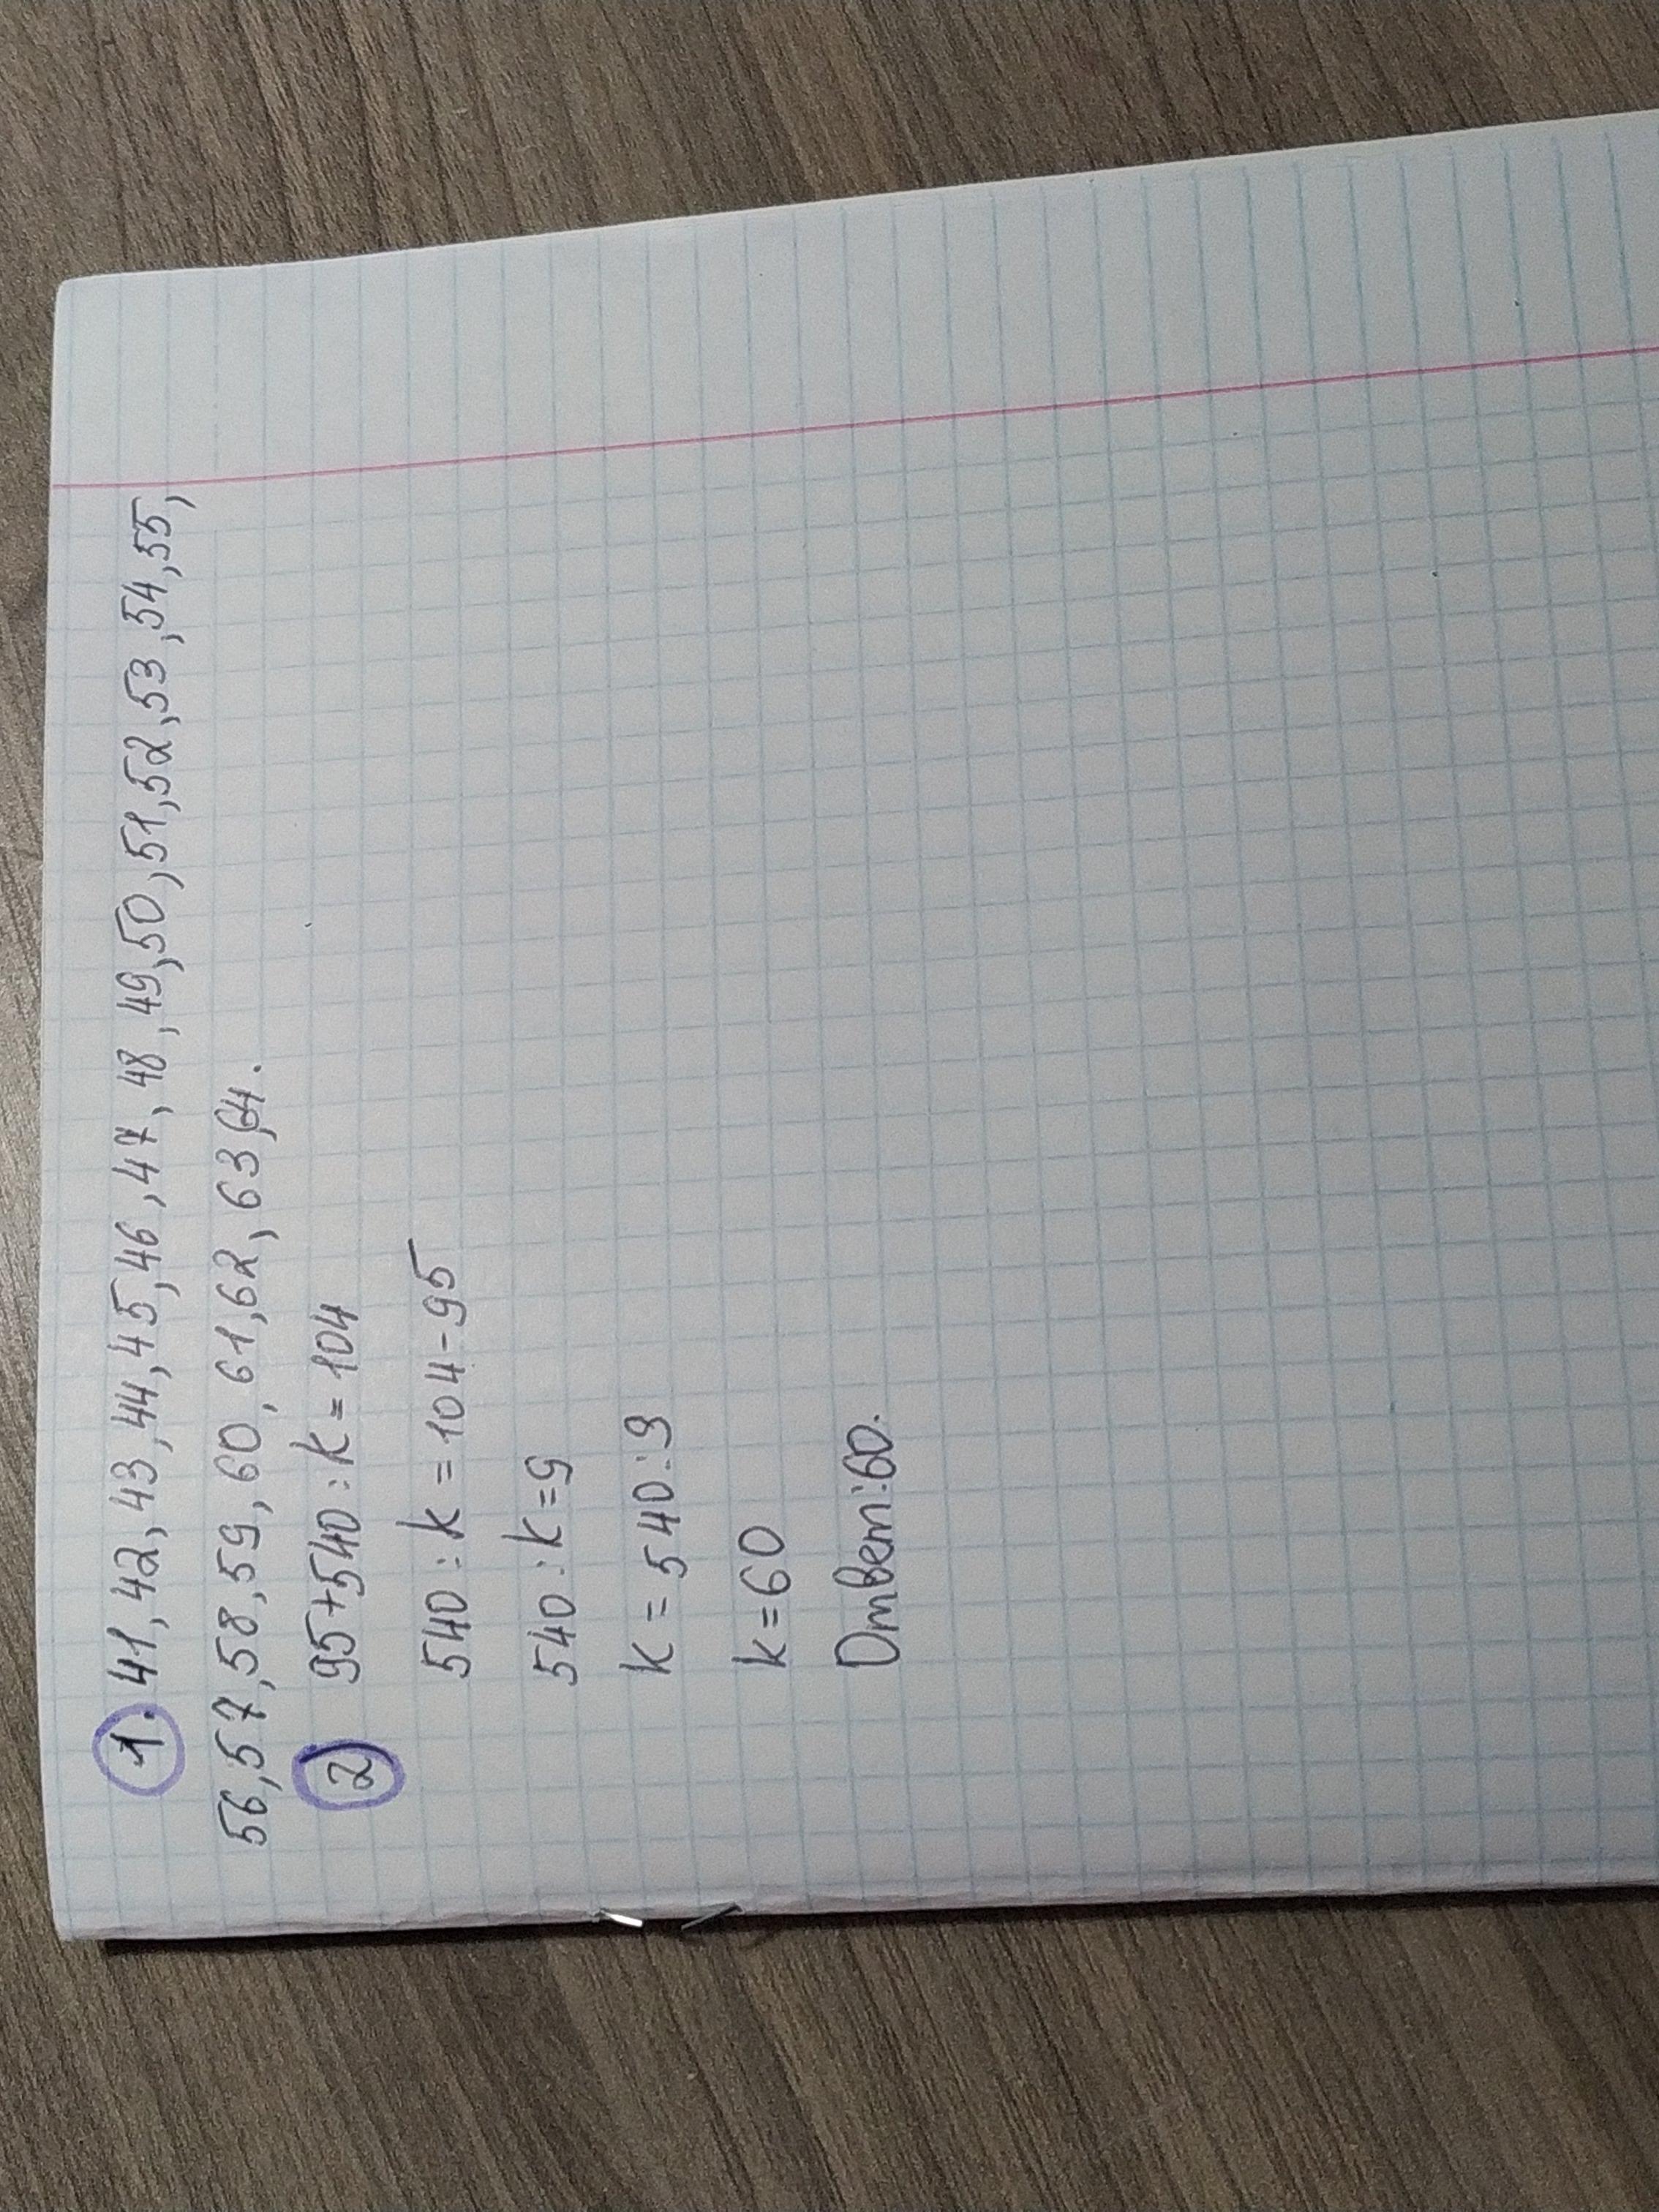 1. 41, 42, 43, 44, 45, 46, 47, 48, 49, 50, 51, 52, 53, 54, 55,
56, 57, 58, 59, 60, 61, 62, 63, 64.
2 95+540:k=104
540:k=104-95
540:k=9
k=540:9
k=60
Ответ:60.